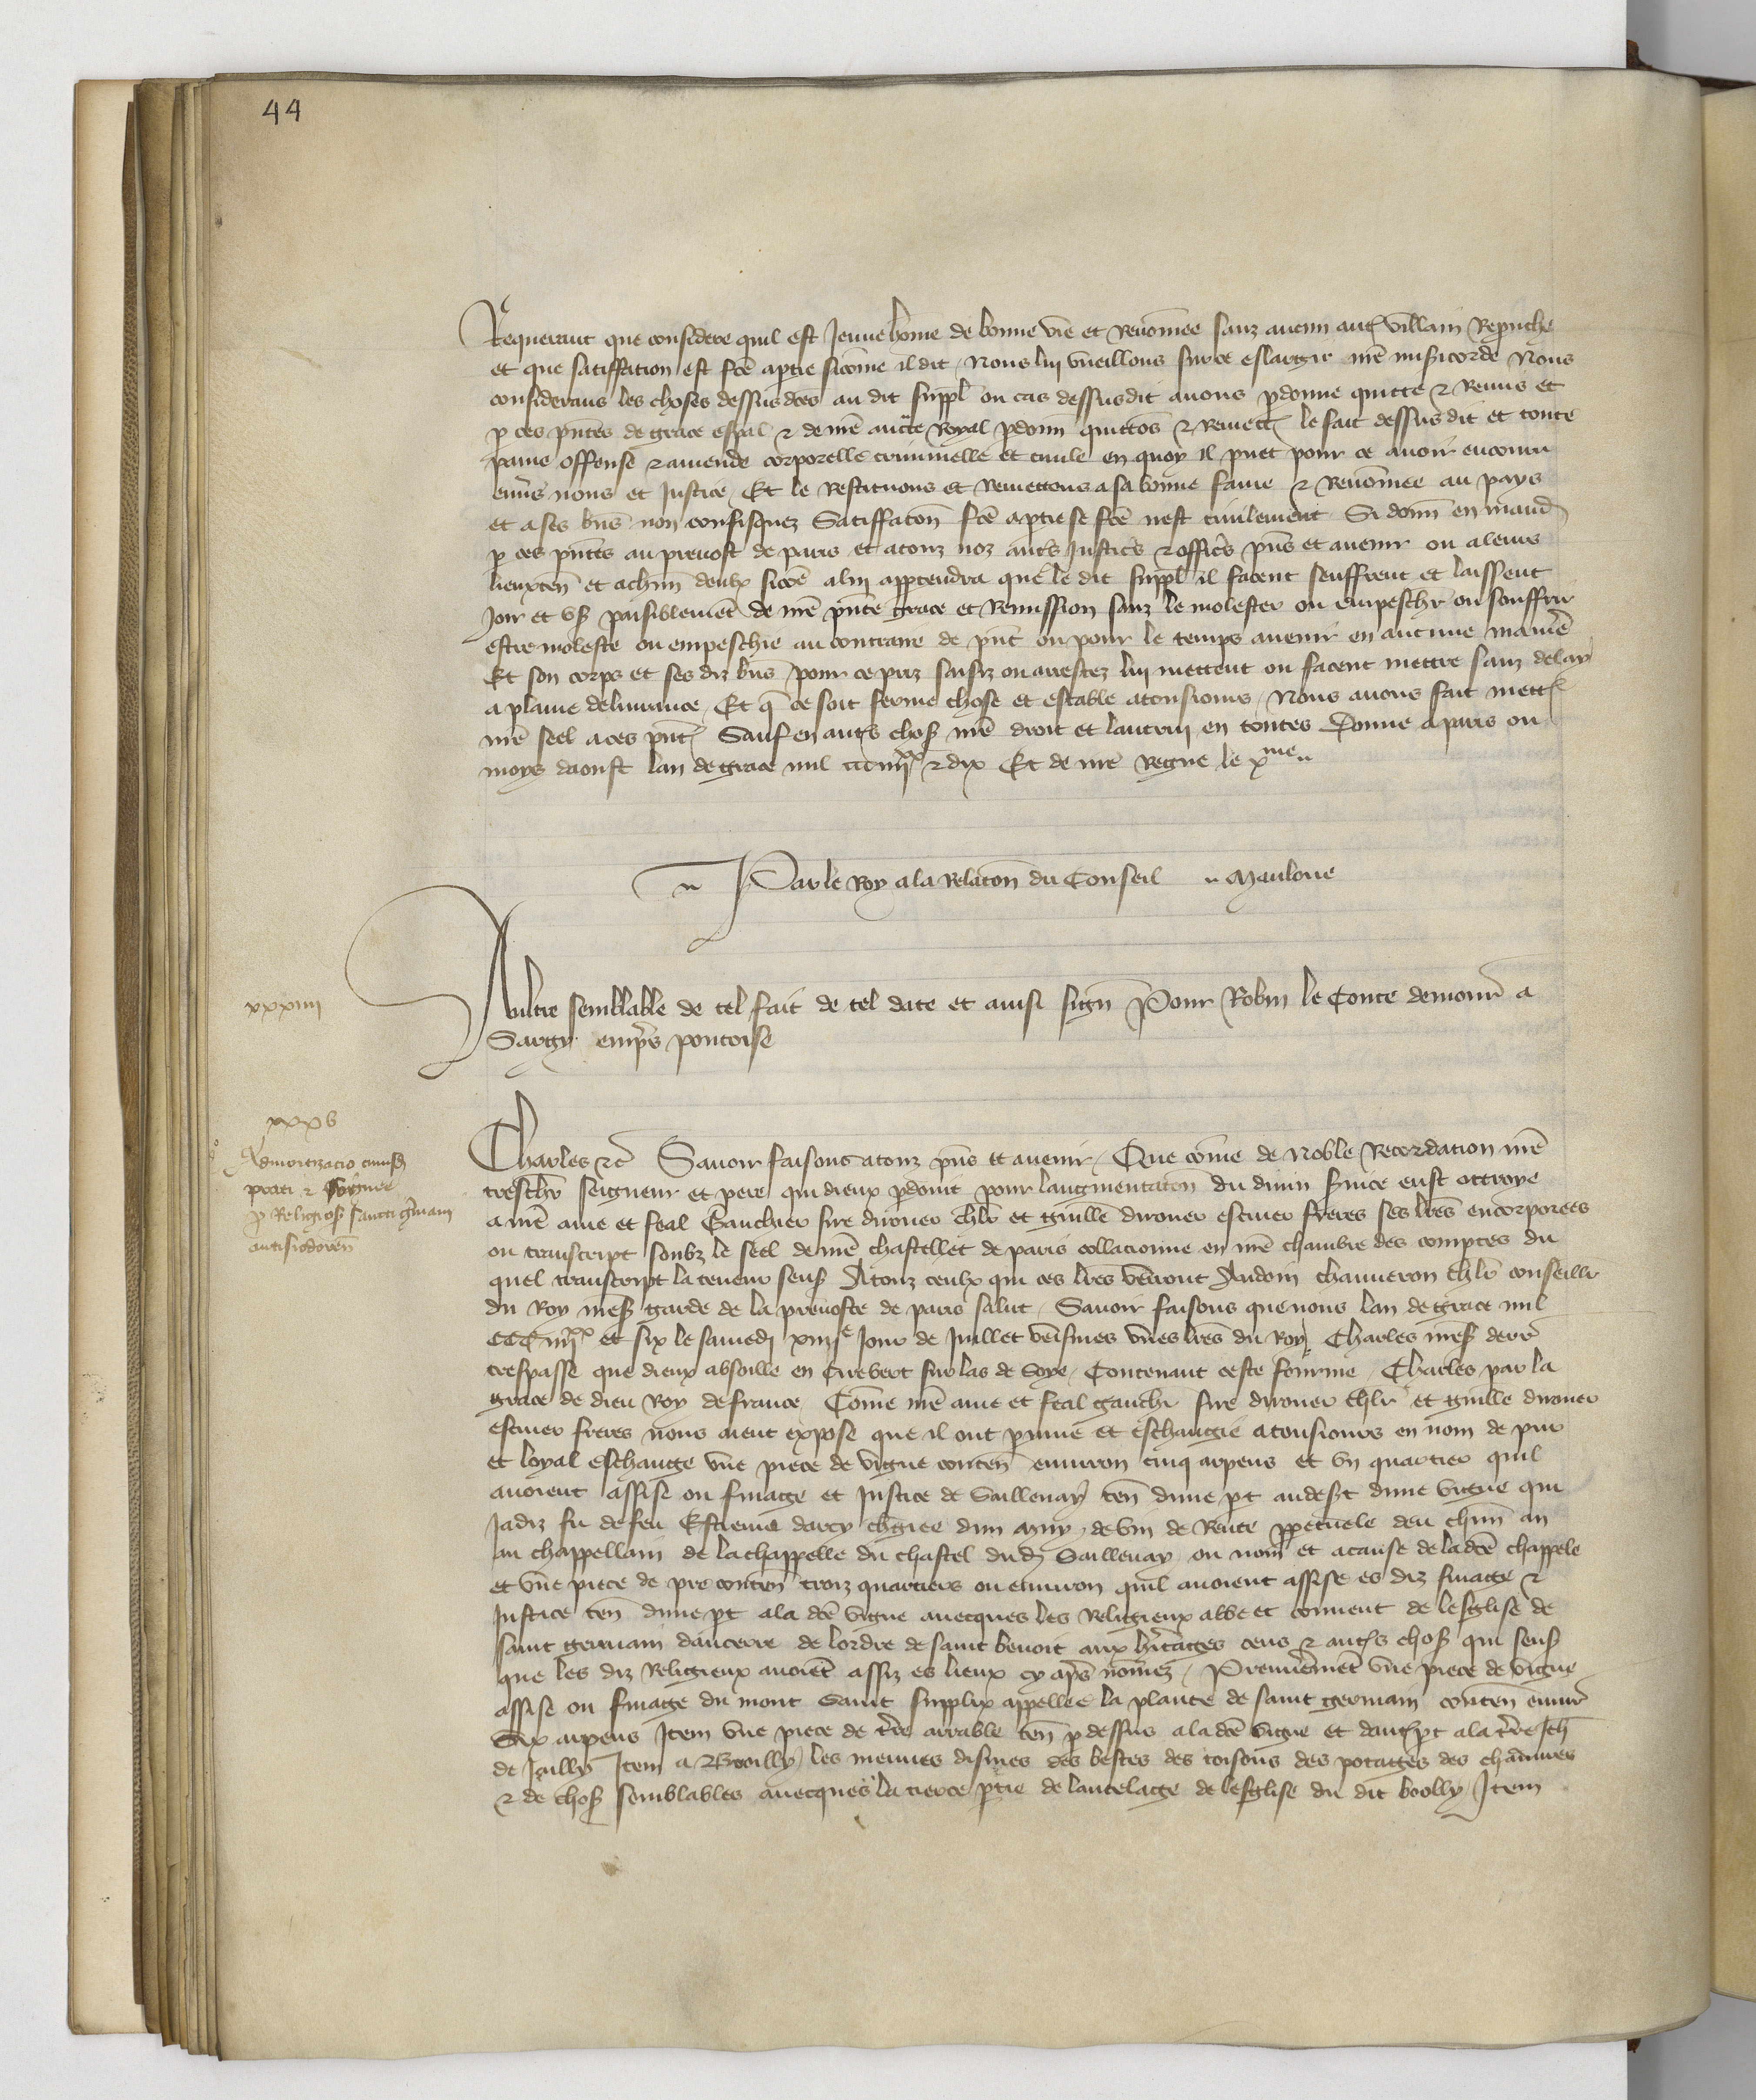 44
Requerant que considere quil est Jeune home de bonne vie et Renomee sanz aucun aut villain Reprouche
et que satiffation est fce aprtie sicome il dit Nous lui vueillons sur ce eslargir nre misicorde Nous
considerans les choses dessus dces au dit suppl ou cas dessusdit avons pdonne quitte & Remis et
p ces pntes de grace espal & de nre aucte Royal pdonn quittos & Remett le fait dessus dit et toute
paine offense & amende corporelle criminelle et civile en quoy il puet pour ce avoir encouru
envs nous et Justice Et le Restituons et Remettons a sa bonne fame & Renomee au pays
et a ses bns non confisquez Satiffaton fce aptie se fce nest civilement Si donn en mand
p ces pntes au prevost de paris et atouz noz auts Justics & offics pns et avenir ou a leurs
lieuxten et achun deulx sicoe a lui appartendra que le dit suppl il facent seuffrent et laissent
Joir et vs paisiblement de nre pnte grace et Remission sanz le molester ou empeschr ou souffrir
estre moleste ou empeschie au contraire de pnt ou pour le temps avenir en aucune maniere
Et son corps et ses diz bns pour ce priz saisiz ou arrestez lui mettent ou facent mettre sanz delay
a plaine delivrance Et q ce soit ferme chose et estable atousiours Nous avons fait mett
nre seel a ces pnt Sauf en auts chos nre droit et lautruy en toutes Donne a paris ou
moys daoust lan de grace mil ccciiijxx & dix Et de nre Regne le xme
Par le Roy a la Relaton du Conseil Mauloue
xxxiiii
Aultre semblable de tel fait de tel date et ainsi sign Pour Robin le Conte demour a
Sargy emprs pontoise
xxxv
Admortizacio
prati & vinee
p Religios sancti Germani
autisiodoren
Charles &c Savoir faisons atouz pns et avenir Que come de Noble Recordation nre
treschr seigneur et pere qui dieux pdoint pour laugmentaton du divin svice eust ottroye
a nre ame et feal Gauchier sire dirouer chlr et guille dirouer escuier freres ses lres encorporees
ou transcript soubz le seel de nre chastellet de paris collacionne en nre chambre des comptes du
quel transcript la teneur sens Atouz ceulx qui ces lres verront Audoin chauveron chlr conseillr
du Roy nres garde de la prevoste de paris salut Savoir faisons que nous lan de grace mil
CCC iiijxx et six le samedi xiiije Jour de Juillet veismes vnes lres du Roy Charles nres derr
trespasse que dieux absoille en cire vert sur las de soye Contenant ceste fourme Charles par la
grace de dieu Roy de france Come nre ame et feal gauchr sire dirouer chlr et guille dirouer
escuier freres nous aient expose que il ont pmue et eschangie atousiours en nom de pur
et loyal eschange vne piece de vigne conten environ cinq arpens et vn quartier quil
avoient assise ou finage et Justice de Saillenay ten dune pt audest dune vigne qui
Jadiz fu de feu Estienne darcy chgiee dun muy de vin de Rente ppetuele deu chun an
au chappellain de la chappelle du chastel dud Saillenay ou nom et a cause de la dce chappele
et vne piece de pre conten troiz quartiers ou environ quil avoient assise es diz finage &
Justice ten dune pt ala dce vigne avecques les Religieux abbe et convent de lesglise de
saint germain daucerre de lordre de saint benoit aux hritages cens & auts chos qui sens
que les diz Religieux avoient assiz es lieux cy aprs nomez Premierement vne piece de vigne
assise ou finage du mont saint supplix appellee la plante de saint germain conten envir
Six arpens Item vne piece de tre arrable ten p dessus ala dce vigne et daut pt ala tre Jeh
de Jully Item a Broilly les menues dismes des bestes des toisons des potages des chanvres
& de chos semblables avecques la tierce ptie de lautelage de lesglise du dit boolly Item